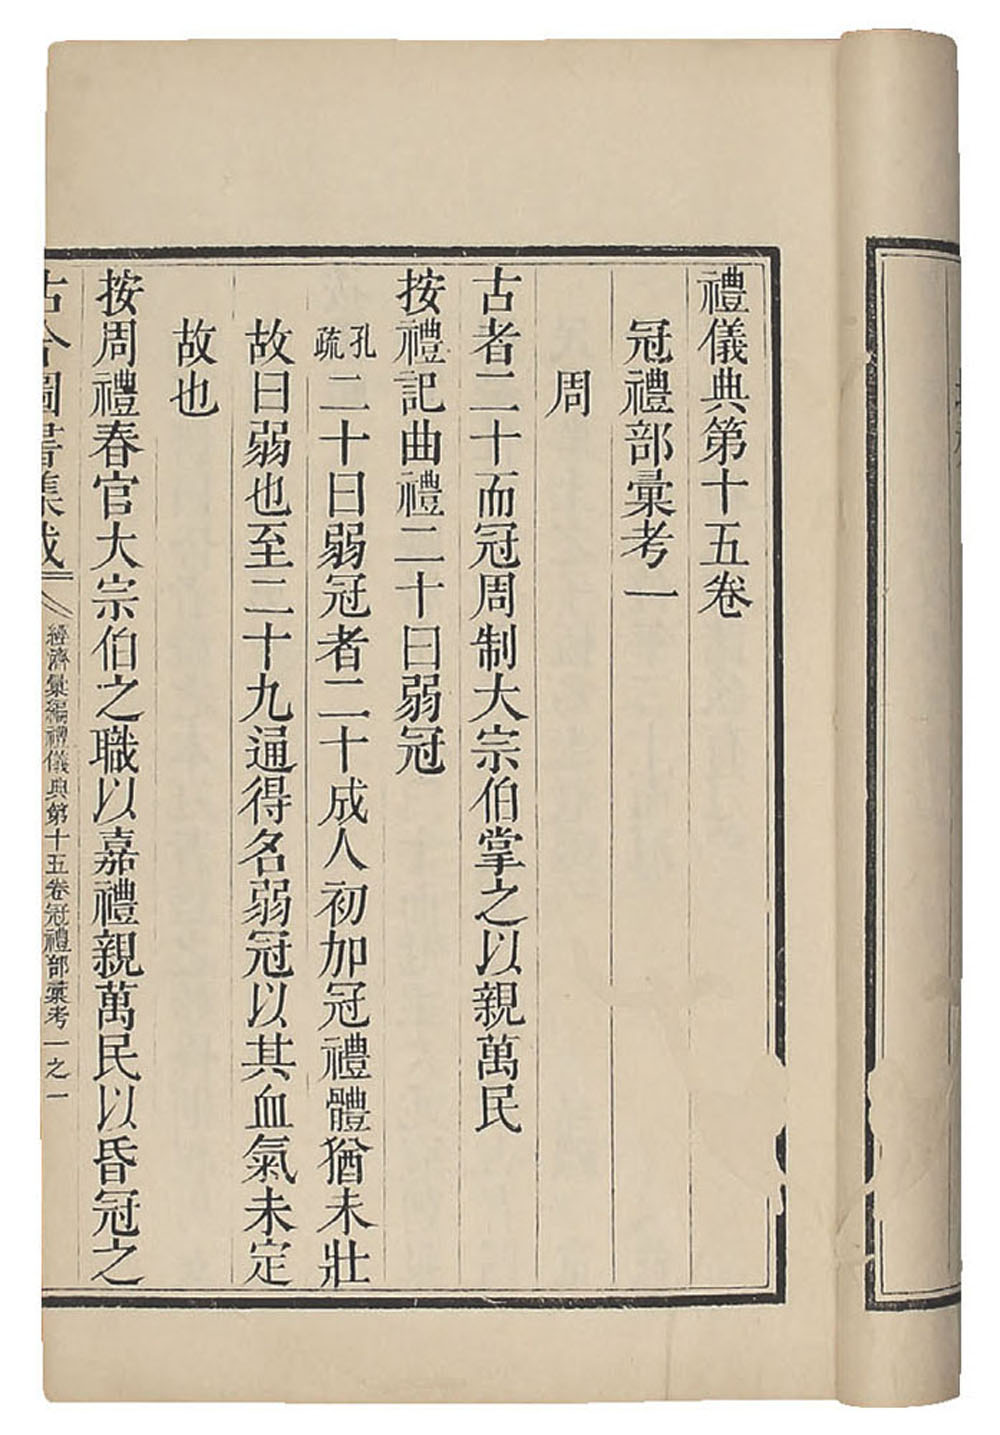 禮儀典第十五卷
冠禮部彙考一
周
古者二十而冠周制大宗伯掌之以親萬民
按禮記曲禮二十曰弱冠
孔疏二十曰弱冠者二十成人初加冠禮體猶未壯
故曰弱也至二十九通得名弱冠以其血氣未定
故也
按周禮春官大宗伯之職以嘉禮親萬民以昏冠之
古今圖書集成
經濟彙編禮儀典第十五卷冠禮部彙考一之一